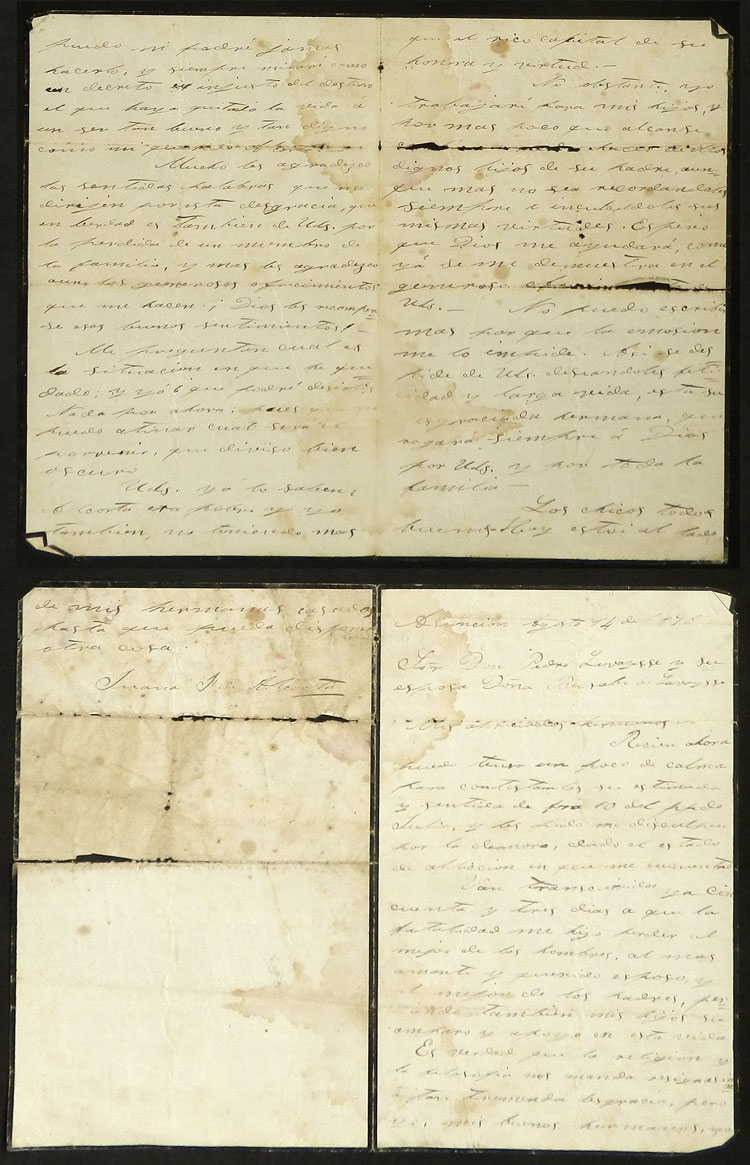 puedo ni podré jamas
hacerlo, y siempre miraré como
un decreto injusto del destino
el que haya quitado la vida á
un ser tan bueno y tan digno
como mi
Mucho les agradezco
las sentidas palabras que me
dirijen por esta desgracia, que
en berdad es tambien de Uds. por
la perdida de un miembro de
la familia, y mas les agradezco
aun los generosos ofrecimientos
que me hacen. ¡Dios les recompen=
se esos buenos sentimientos! —
Me preguntan cual es
la situacion en que he que
dado; y yó ¿que podré desirles
Nada por ahora, pues que no
puedo atinar cual será el
porvenir, que diviso bien
oscuro
Uds. yá lo saben:
Alcorta era pobre y yo
tambien, no teniendo mas
que el rico capital de su
honra y virtud. —
No obstante, yo
trabajaré para mis hijos, y
por mas poco que alcanse
hacer de ellos
dignos hijos de su padre, aun-
que mas no sea recordandoles
siempre é inculcandoles sus
mismas virtudes. Espero
que Dios me ayudará, como
yá se me demuestra en el
generoso de
Uds. — No puedo escribir
mas por que la emosion
me lo impide. Asi se des
pide de Uds. deseandoles feli=
cidad y larga vida, esta su
desgraciada hermana, que
rogará siempre á Dios
por Uds. y por toda la
familia —
Los chicos todos
buenos. Hoy estoi al lado
de mis hermanas casadas
hasta que pueda disponer
otra cosa.
Juana F. de Alcorta
Asuncion Agosto 14 de 1875
Sor Don Pedro Lavaysse y su
esposa Doña de Lavaysse
Mis apreciados hermanos
Recien ahora
puedo tener un poco de calma
para contestarles su estimada
y sentida de fha 10 del ppdo
Julio, y les pido me disculpen
por la demora, dado el estado
de afliccion en que me encuentro
Van transcurridos ya cin
cuenta y tres dias a que la
fatalidad me hizo perder al
mejor de los hombres, al mas
amante y querido esposo, y
el mejor de los padres, per=
diendo tambien mis hijos su
amparo y apoyo en esta vida
Es verdad que la religion y
la filosofia nos manda resignacion
á tan tremenda desgracia, pero
yo, mis buenos hermanos, no